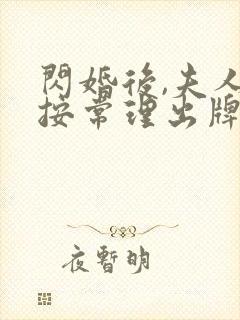 閃婚後,夫人
按常理出牌
夜暫明